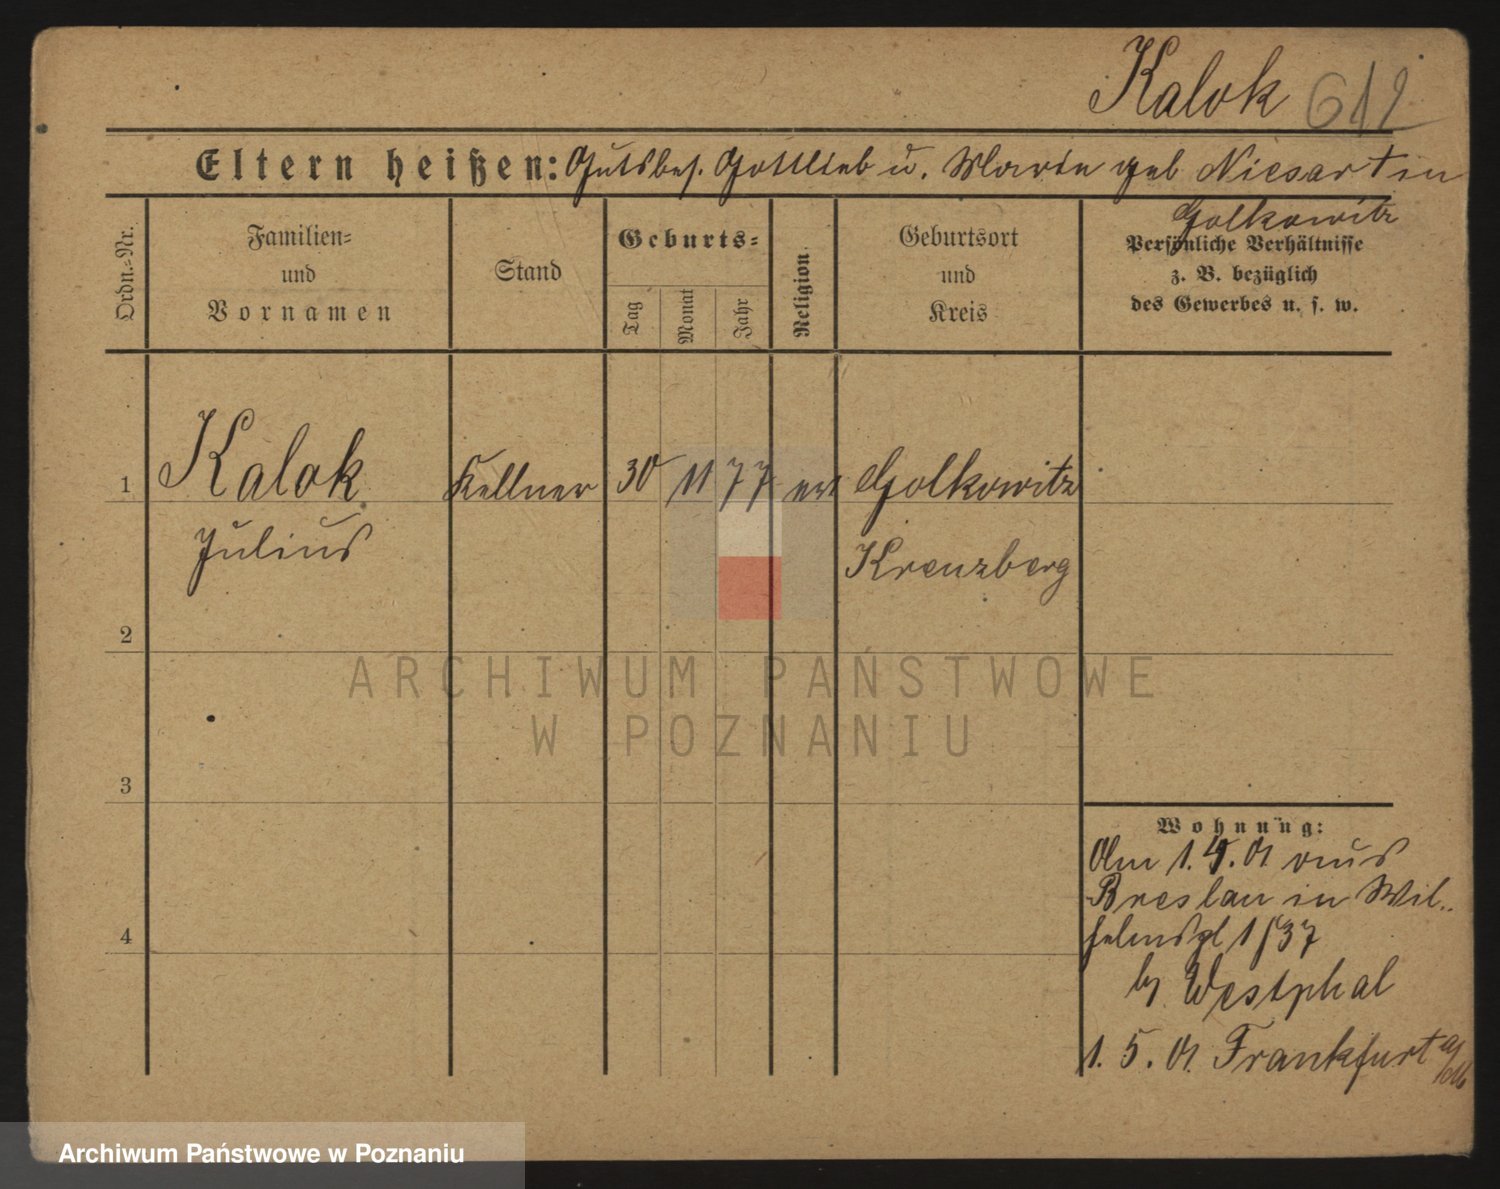 Kalok 612
Eltern heißen: Gutsbes. Gottlieb u. Marie geb Niesart in
Golkowitz
Ordn.-Nr.
Familien-
und
Vornamen
Stand
Geburts-
Tag
Monat
Jahr
Religion
Geburtsort
und
Kreis
Persönliche Verhältnisse
z. B. bezüglich
des Gewerbes u. s. w.
1 Kalok Kellner 30 11 77 ev Golkowitz
Julius Kreuzberg
2
ARCHIWUM PAŃSTWOWE
W POZNANIU
3
Wohnung:
Am 1.4.01 aus
Breslau in Wil-
helmspl 1 37
4
by Westphal
1. 5. 01 Frankfurt a/M
Archiwum Państwowe w Poznaniu